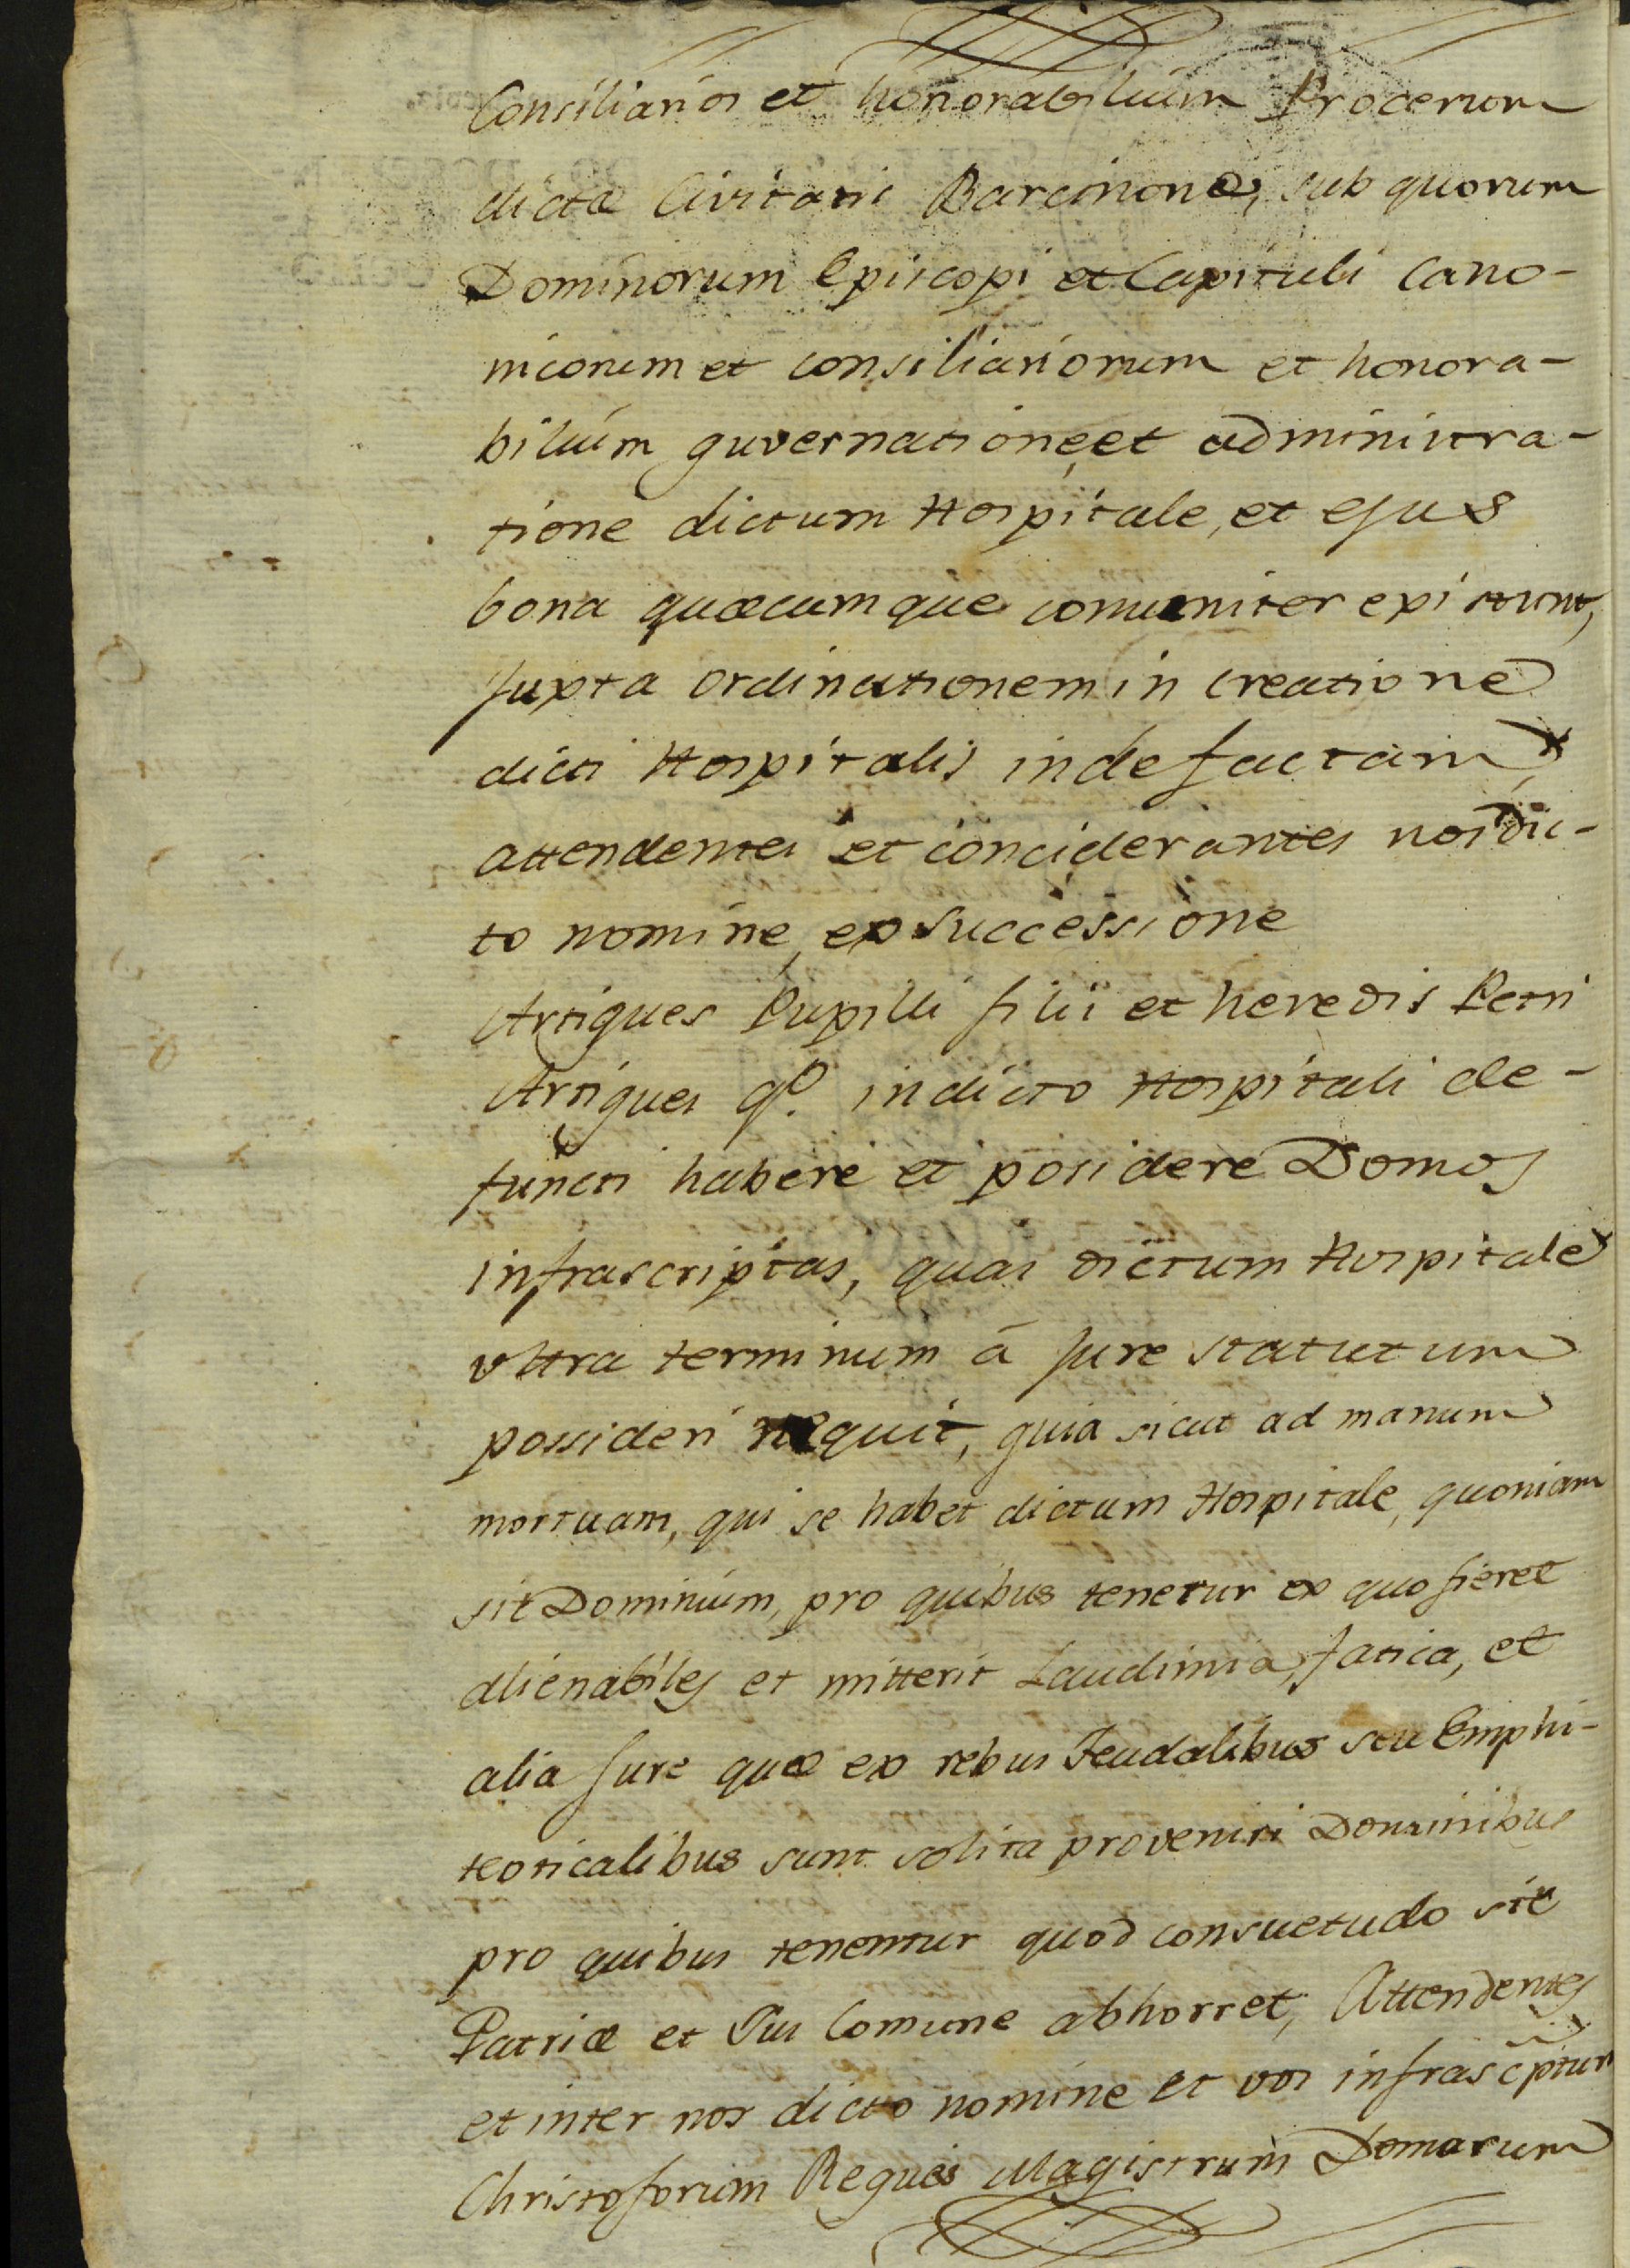 Consiliarios et honorabilium Procerum
dictæ Civitatis Barcinonæ, sub quorum
Dominorum Episcopi et Capituli Cano-
nicorum et consiliariorum et honora-
bilium guvernatione, et administra-
tione dictum Hospitale, et ejus
bona quæcumque comuniter existunt,
juxta ordinationem in creatione
dicti Hospitalis inde factam,
attendentes et conciderantes nos dic-
to nomine, ex successione
Artigues Pupilli filii et heredis Petri
Artigues qº. in dicto Hospitali de-
functi habere et posidere Domos
infrascriptas, quas dictum Hospitale
ultra terminum â jure statutum
possideri nequit, quia sicut ad manum
mortuam, qui se habet dictum Hospitale, quoniam
sit Dominium, pro quibus tenetur ex quo fieret
alienabiles et mitterit Laudimia, fatica, et
alia jure quæ ex rebus Feudalibus seu Emphi-
teoticalibus sunt solita proveniri Dominibus
pro quibus tenentur quod consuetudo sit
Patriæ et Jus Comune abhorret, Attendentes
et inter nos dicto nomine et vos infrascptum
Christoforum Regués Magistrum Domarum